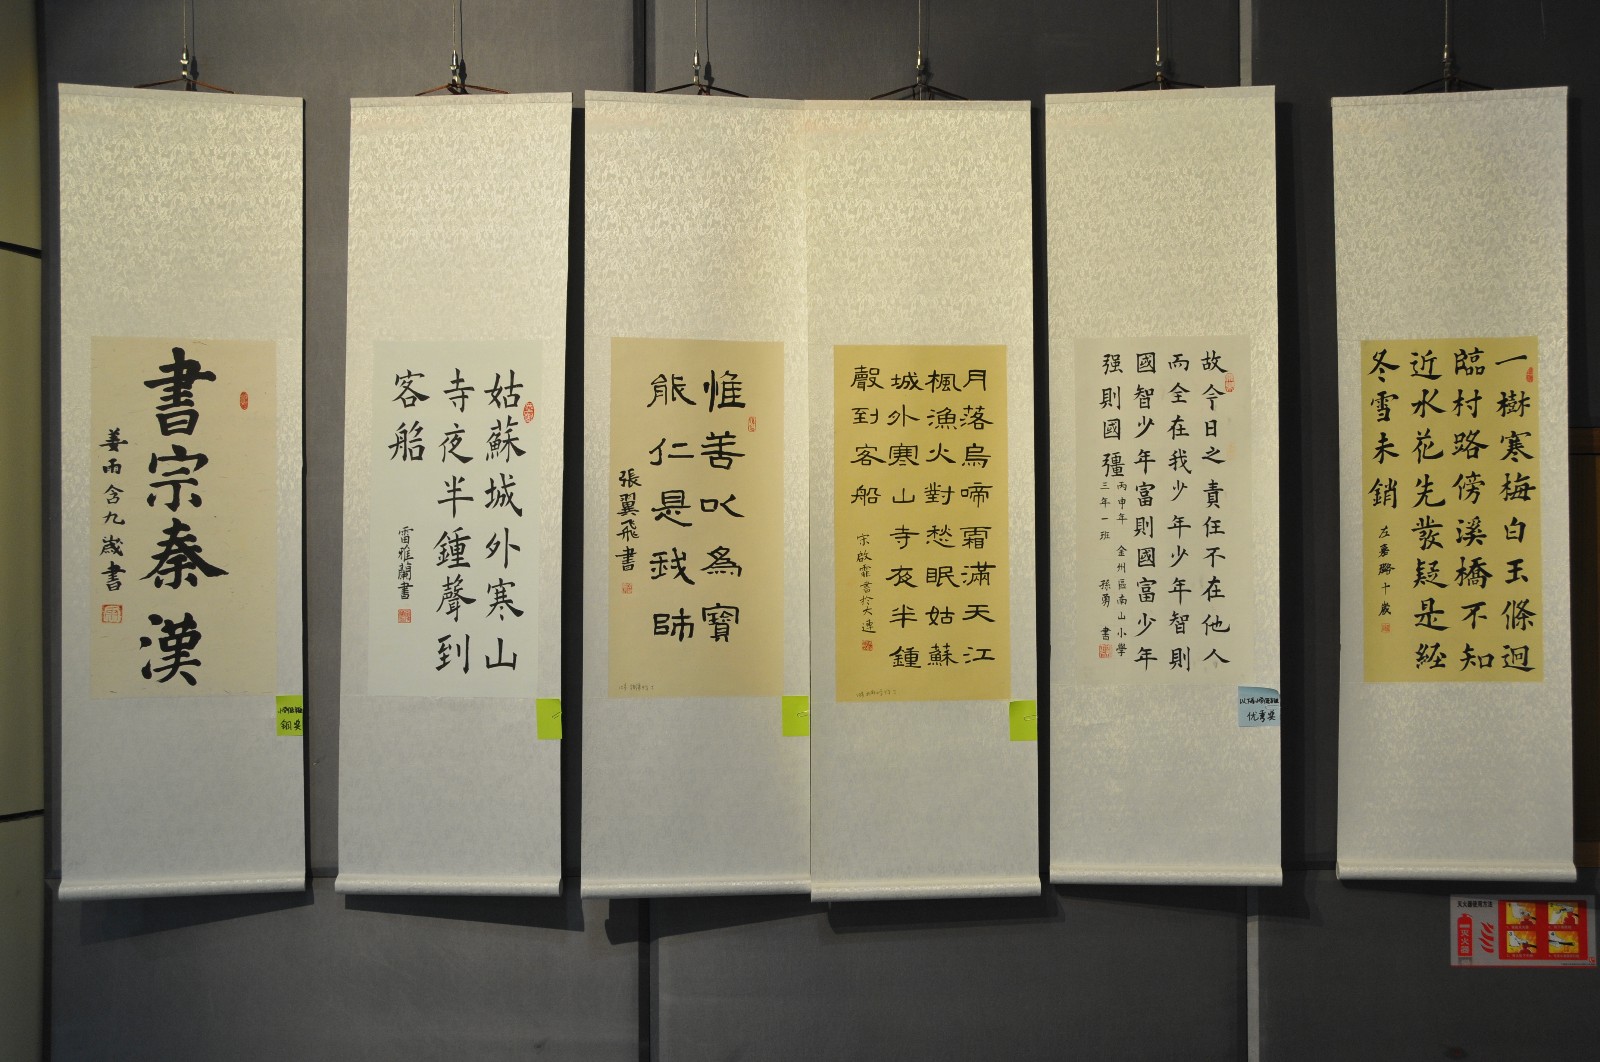 書宗秦漢
姜雨含九歲書
铜奖
姑蘇城外寒山
寺夜半鍾聲到
客船
雷雅蘭書
惟善以為寶
能仁是我師
張翼飛書
月落烏啼霜滿天江
楓漁火對愁眠姑蘇
城外寒山寺夜半鍾
聲到客船
宗啟霏書於大連
故今日之責任不在他人
而全在我少年少年智則
國智少年富則國富少年
强則國彊
丙申年 金州區南山小學
三年一班 孫勇 書
优秀奖
一樹寒梅白玉條迥
臨村路傍溪橋不知
近水花先發疑是經
冬雪未銷
十歲
灭火器使用方法
灭火器